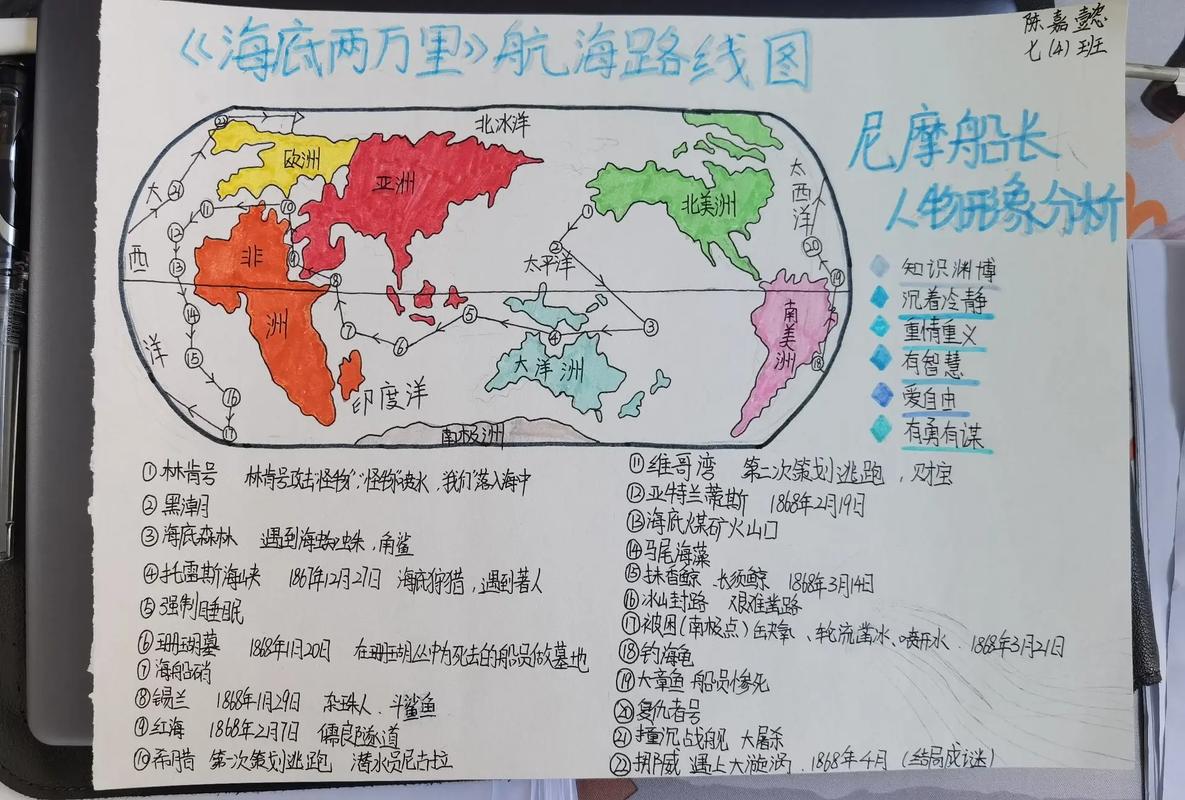 陈嘉懿
七(4)班
《海底两万里》航海路线图
尼摩船长
人物形象分析
知识渊博
沉着冷静
重情重义
有智慧
爱自由
有勇有谋
北冰洋
欧洲
亚洲
北美洲
大西洋
大西洋
太平洋
非洲
南美洲
大洋洲
印度洋
南极洲
①林肯号 林肯号攻击"怪物","怪物"喷水,我们落入海中
②黑潮
③海底森林 遇到海蜘蛛,角鲨
④托雷斯海峡 1867年12月27日 海底狩猎,遇到著人
⑤强制睡眠
⑥珊瑚墓 1868年1月20日 在珊瑚丛中为死去的船员做墓地
⑦海船硝
⑧锡兰 1868年1月29日 采珠人、斗鲨鱼
⑨红海 1868年2月7日 儒良隧道
⑩希腊 第一次策划逃跑 潜水员尼古拉
⑪维哥湾 第二次策划逃跑,财宝
⑫亚特兰蒂斯 1868年2月19日
⑬海底煤矿火山口
⑭马尾海藻
⑮抹香鲸 长须鲸 1868年3月14日
⑯冰山封路 艰难凿路
⑰被困(南极点)缺氧、轮流凿冰、喷开水 1868年3月21日
⑱钓海龟
⑲大章鱼 船员惨死
⑳复仇者号
㉑撞沉战舰 大屠杀
㉒挪威 遇上大漩涡.1868年4月(结局成谜)